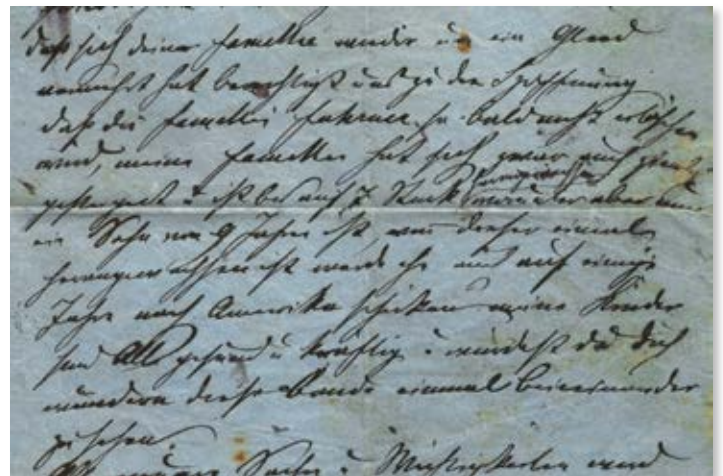 daß sich deine Famellie wieder um ein Glied
vermehrt hat berechtigt uns zu der Hoffnung
daß die Famellie Fahrner so bald nicht erlöschen
wird, meine Famellie hat sich zwar auch
ist bis auf 7 Stück aber nur
ein Sohn von 9 Jahren ist, wen dieser einmal
herangewachssen ist werde ich auf einige
Jahre nach Amerika schicken meine Kinder
sind All gesund u kräftig u würdest du dich
wundern diese Bande einmal beieinander
zu sehen.
u wird